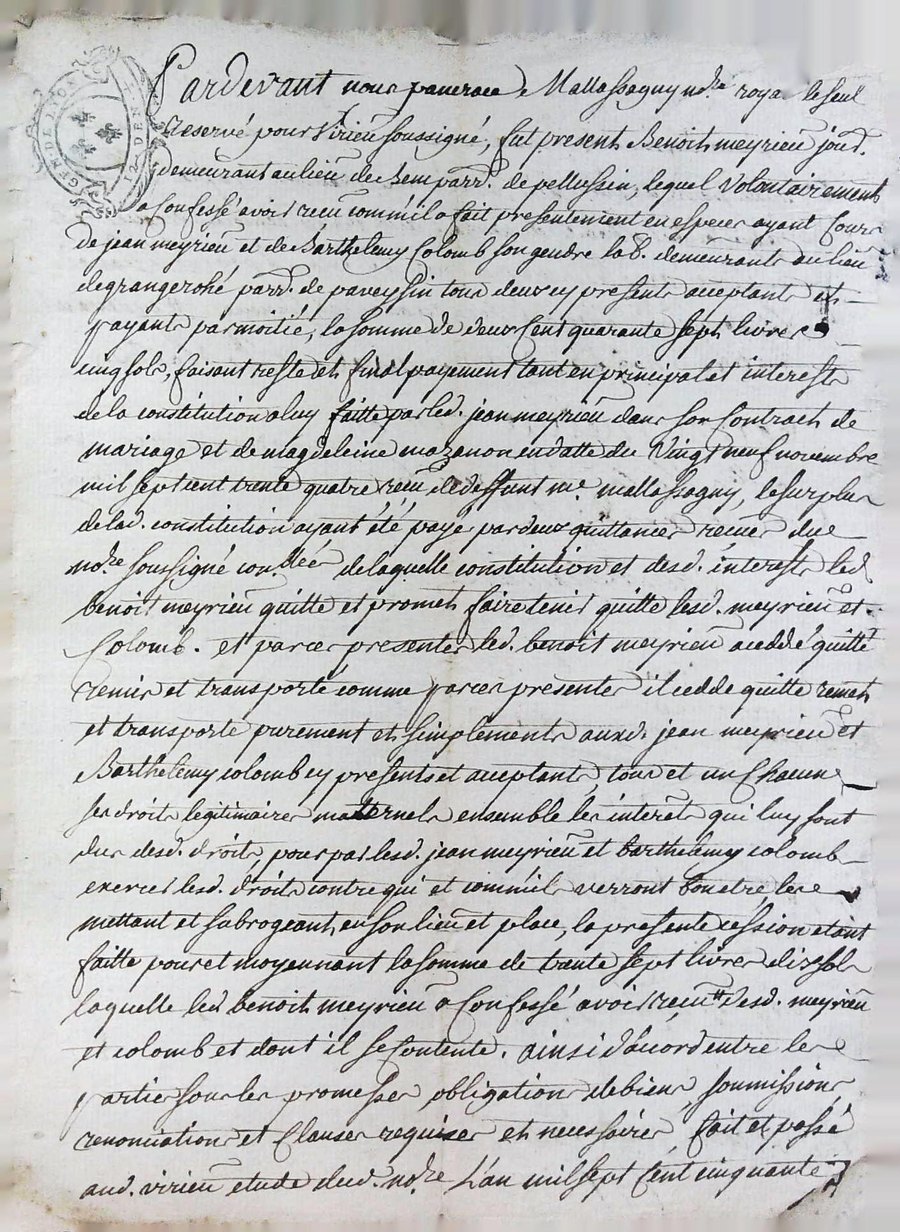 GEN. DE LYON
12 DEN.
Pardevant nous pancrace Mallassagny no.re roya. le seul
Reservé pour Virieu soussigné, fut present Benoit meyrieu jour.
demeurant au lieu de Bem parr. de pellussin, lequel Volontairement
a Confessé avoir receu comm'il a fait presentement en especes ayant Cours
de jean meyrieu et de Barthelemy Colomb son gendre lab. demeurants au lieu
de grangerohé parr. de paveyssin tous deux cy presents acceptants et
payants par moitié, la somme de deux Cent quarante sept livres
cinq sols, faisant reste et final payement tant en principal et interests
de la constitution a luy faitte par led. jean meyrieu dans son Contract de
mariage et de magdeleine mazenon en datte du Vingt neuf novembre
mil sept cent trente quatre receu led. deffunt me. mallassagny, le surplus
de lad. constitution ayant été payé par deux quittances receues dud.
no.re soussigné de laquelle constitution et desd. interests led.
benoit meyrieu quitte et promet faire tenir quitte lesd. meyrieu et
Colomb. et par ces presentes led. benoit meyrieu a ceddé quitté
remis et transporté comme par ces presentes il cedde quitte remet
et transporte purement et simplement aux d. jean meyrieu et
Barthelemy colomb cy presents et acceptants, tous et un Chacuns
ses droits legitimaires maternels ensemble les interets qui luy sont
dus desd. droits, pour par lesd. jean meyrieu et barthelemy colomb
exercer lesd. droits contre qui et comm'ils verront bon etre, les
mettant et subrogeant, en son lieu et place, la presente cession etant
faitte pour et moyennant la somme de trente sept livres dix sols
laquelle led. benoit meyrieu a Confessé avoir receu desd. meyrieu
et colomb et dont il se Contente. ainsi d'acord entre les
parties sous les promesses obligations de biens, soumissions,
renonciations et Clauses requises et necessaires, fait et passé
aud. virieu etude dud. no.re L'an mil sept Cent cinquante